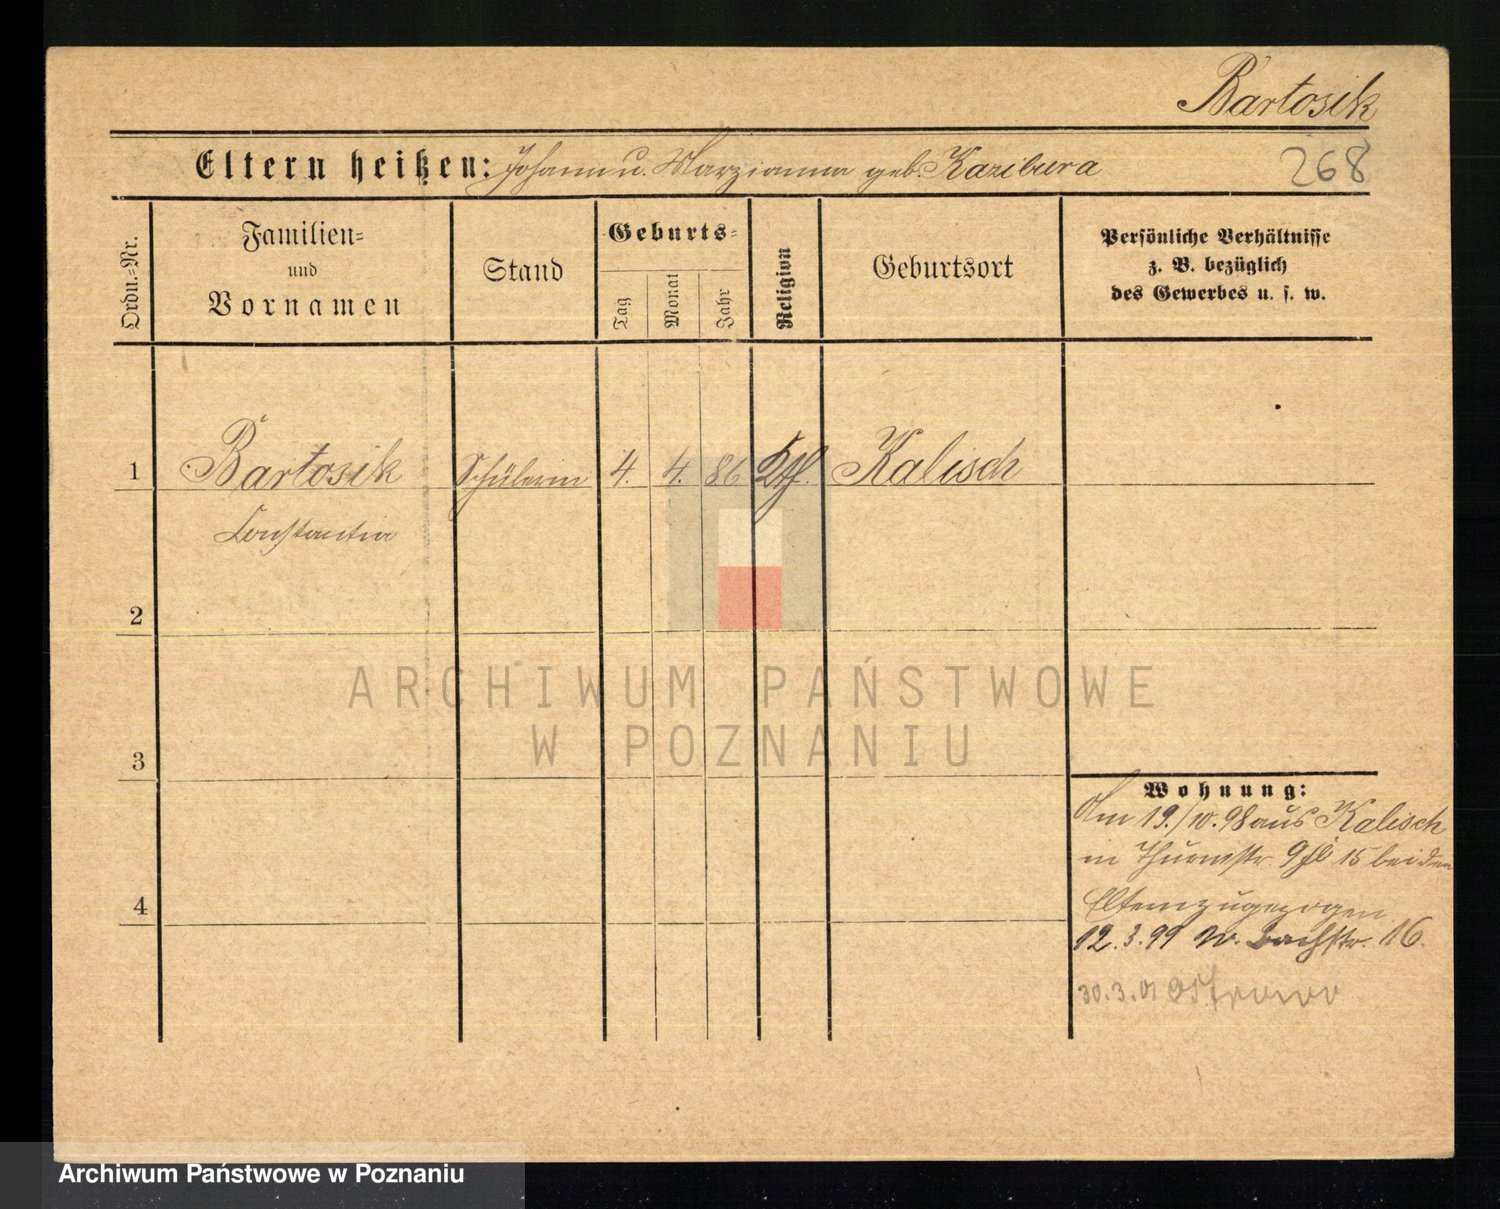 Bartosik
Eltern heißen: Johann u. Marzianna geb. Kazibura
268
Ordn.-Nr.
Familien-
und
Vornamen
Stand
Geburts-
Tag
Monat
Jahr
Religion
Geburtsort
Persönliche Verhältnisse
z. B. bezüglich
des Gewerbes u. s. w.
1 Bartosik Schülerin 4. 4. 86 Kth. Kalisch
Constantia
2
3
4
Wohnung:
Am 19./10. 98 aus Kalisch
in Thurmstr. 15 bei den
Eltern zugezogen
12. 3. 99 W. Bachstr. 16.
30. 3. 01 Ostrowo
ARCHIWUM PAŃSTWOWE
W POZNANIU
Archiwum Państwowe w Poznaniu